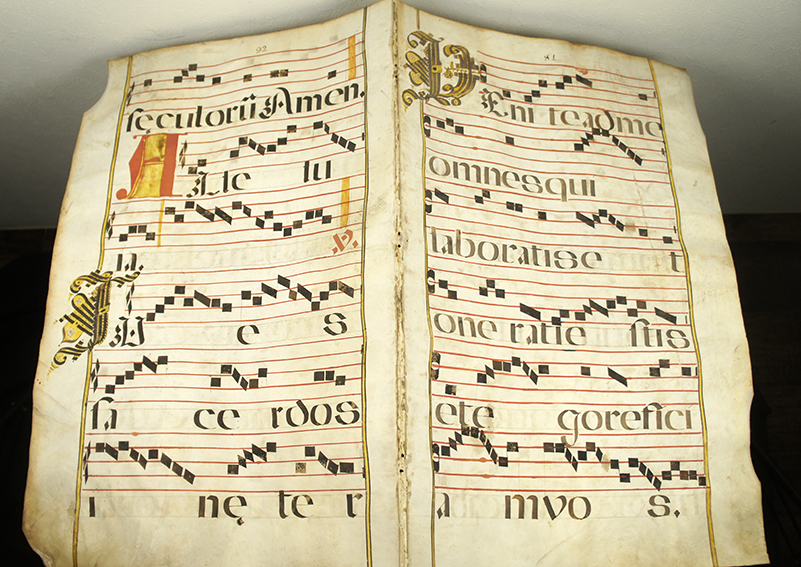 92
seculorũ Amen.
Alle lu
ia ℣.
TV e s
ſa cerdos
i nę te r
VEni teadme
omnesqui
laboratise t
oneratie ſtis
ete goreſici
a mvo s.